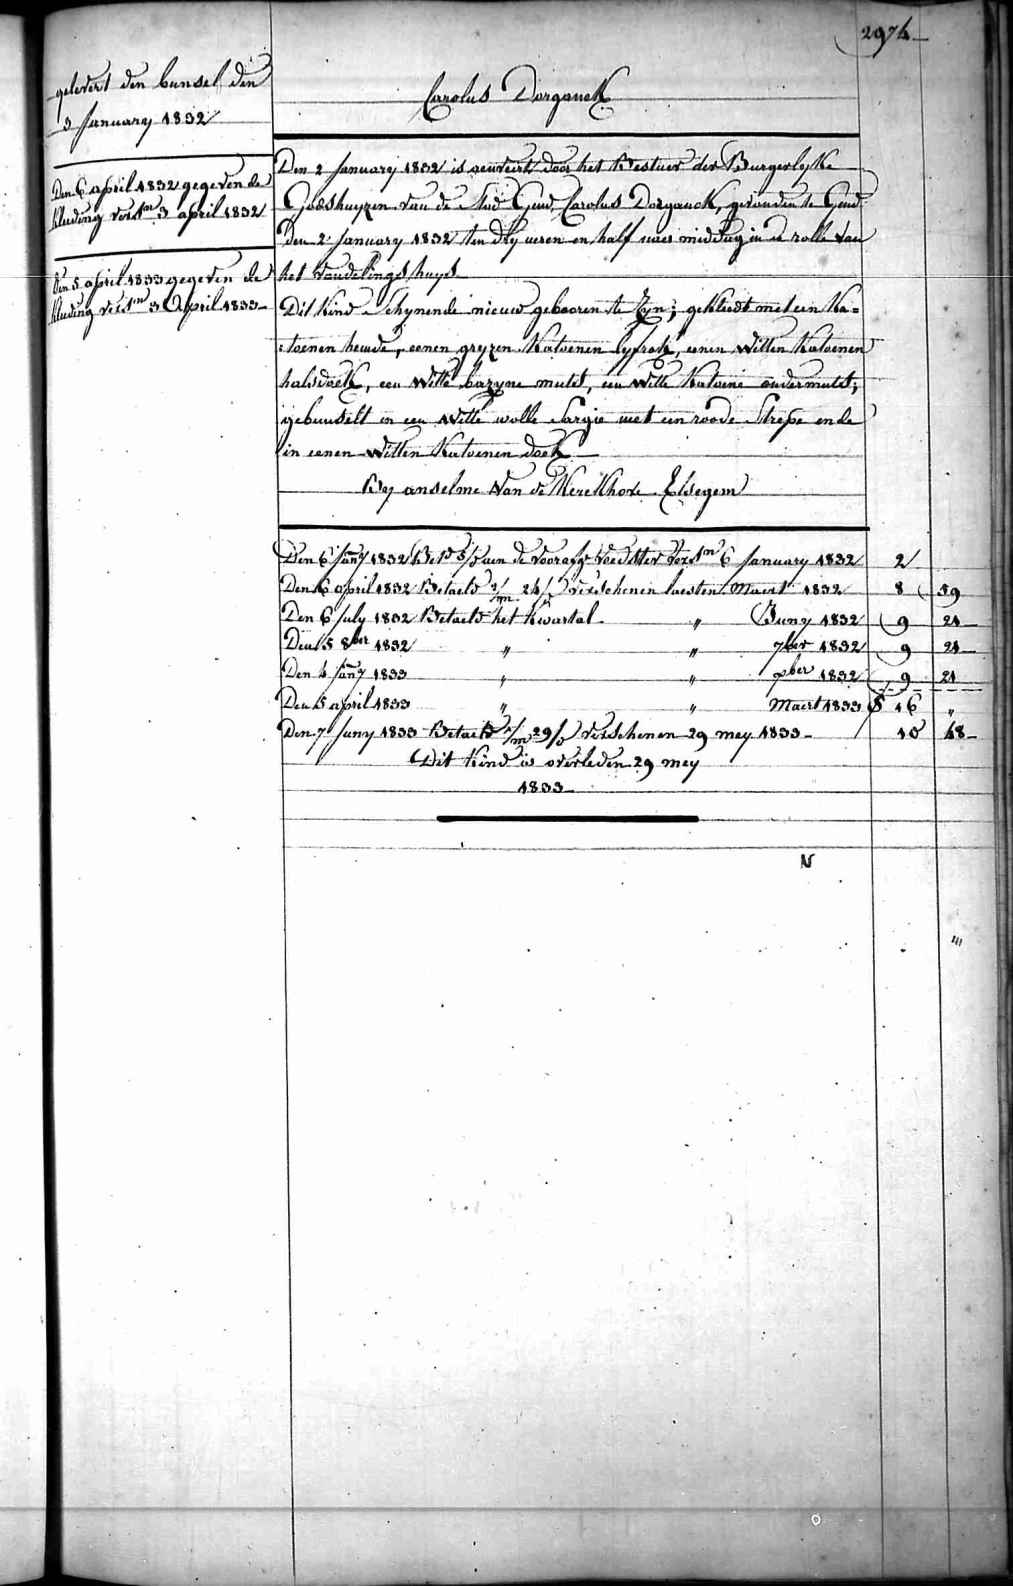 2974
gelevert den bunsel den
3 January 1832
Den 6 april 1832 gegeven de
kleeding versn 3 april 1832
Den 5 april 1833 gegeven de
kleeding versn 3 April 1833
Carolus Dorganck
Den 2 January 1832 is aenveirt door het Bestier der Burgerlyke
Godshuyzen van de Stad Gend, Carolus Dorganck, gevonden te Gend
Den 2 January 1832 ten dry ueren en half naer middag in de rolle van
het vondelings huys
Dit Kind Schynende nieuw gebooren te zyn; gekleedt met een Ka=
=toenen hemde, eenen gryzen Katoenen lyfrok, eenen Witten Katoenen
halsdoek, een Witte bazyne muts, een Witte Katoene ondermuts;
gebunselt in een Witte wolle Sargie met een roode Strepe ende
in eenen Witten Katoenen doek
By anselme Van de Kerckhove Elsegem
Den 6 Jany 1832 Bet. aen de voorafge voedster versn 6 January 1832 2
Den 6 april 1832 Betaeld 2/m 24/ verschenen laesten Maert 1832 8 59
Den 6 July 1832 Betaeld het kwartal " Juny 1832 9 21
Den 5 8ber 1832 " " 7ber 1832 9 21
Den 4 Jany 1833 " " xber 1832 9 21
Den 5 april 1833 " " Maert 1833 16 "
Den 7 Juny 1833 Betaeld 1/m 29/ verschenen 29 mey 1833 10 48
Dit Kind is overleden 29 mey
1833
N